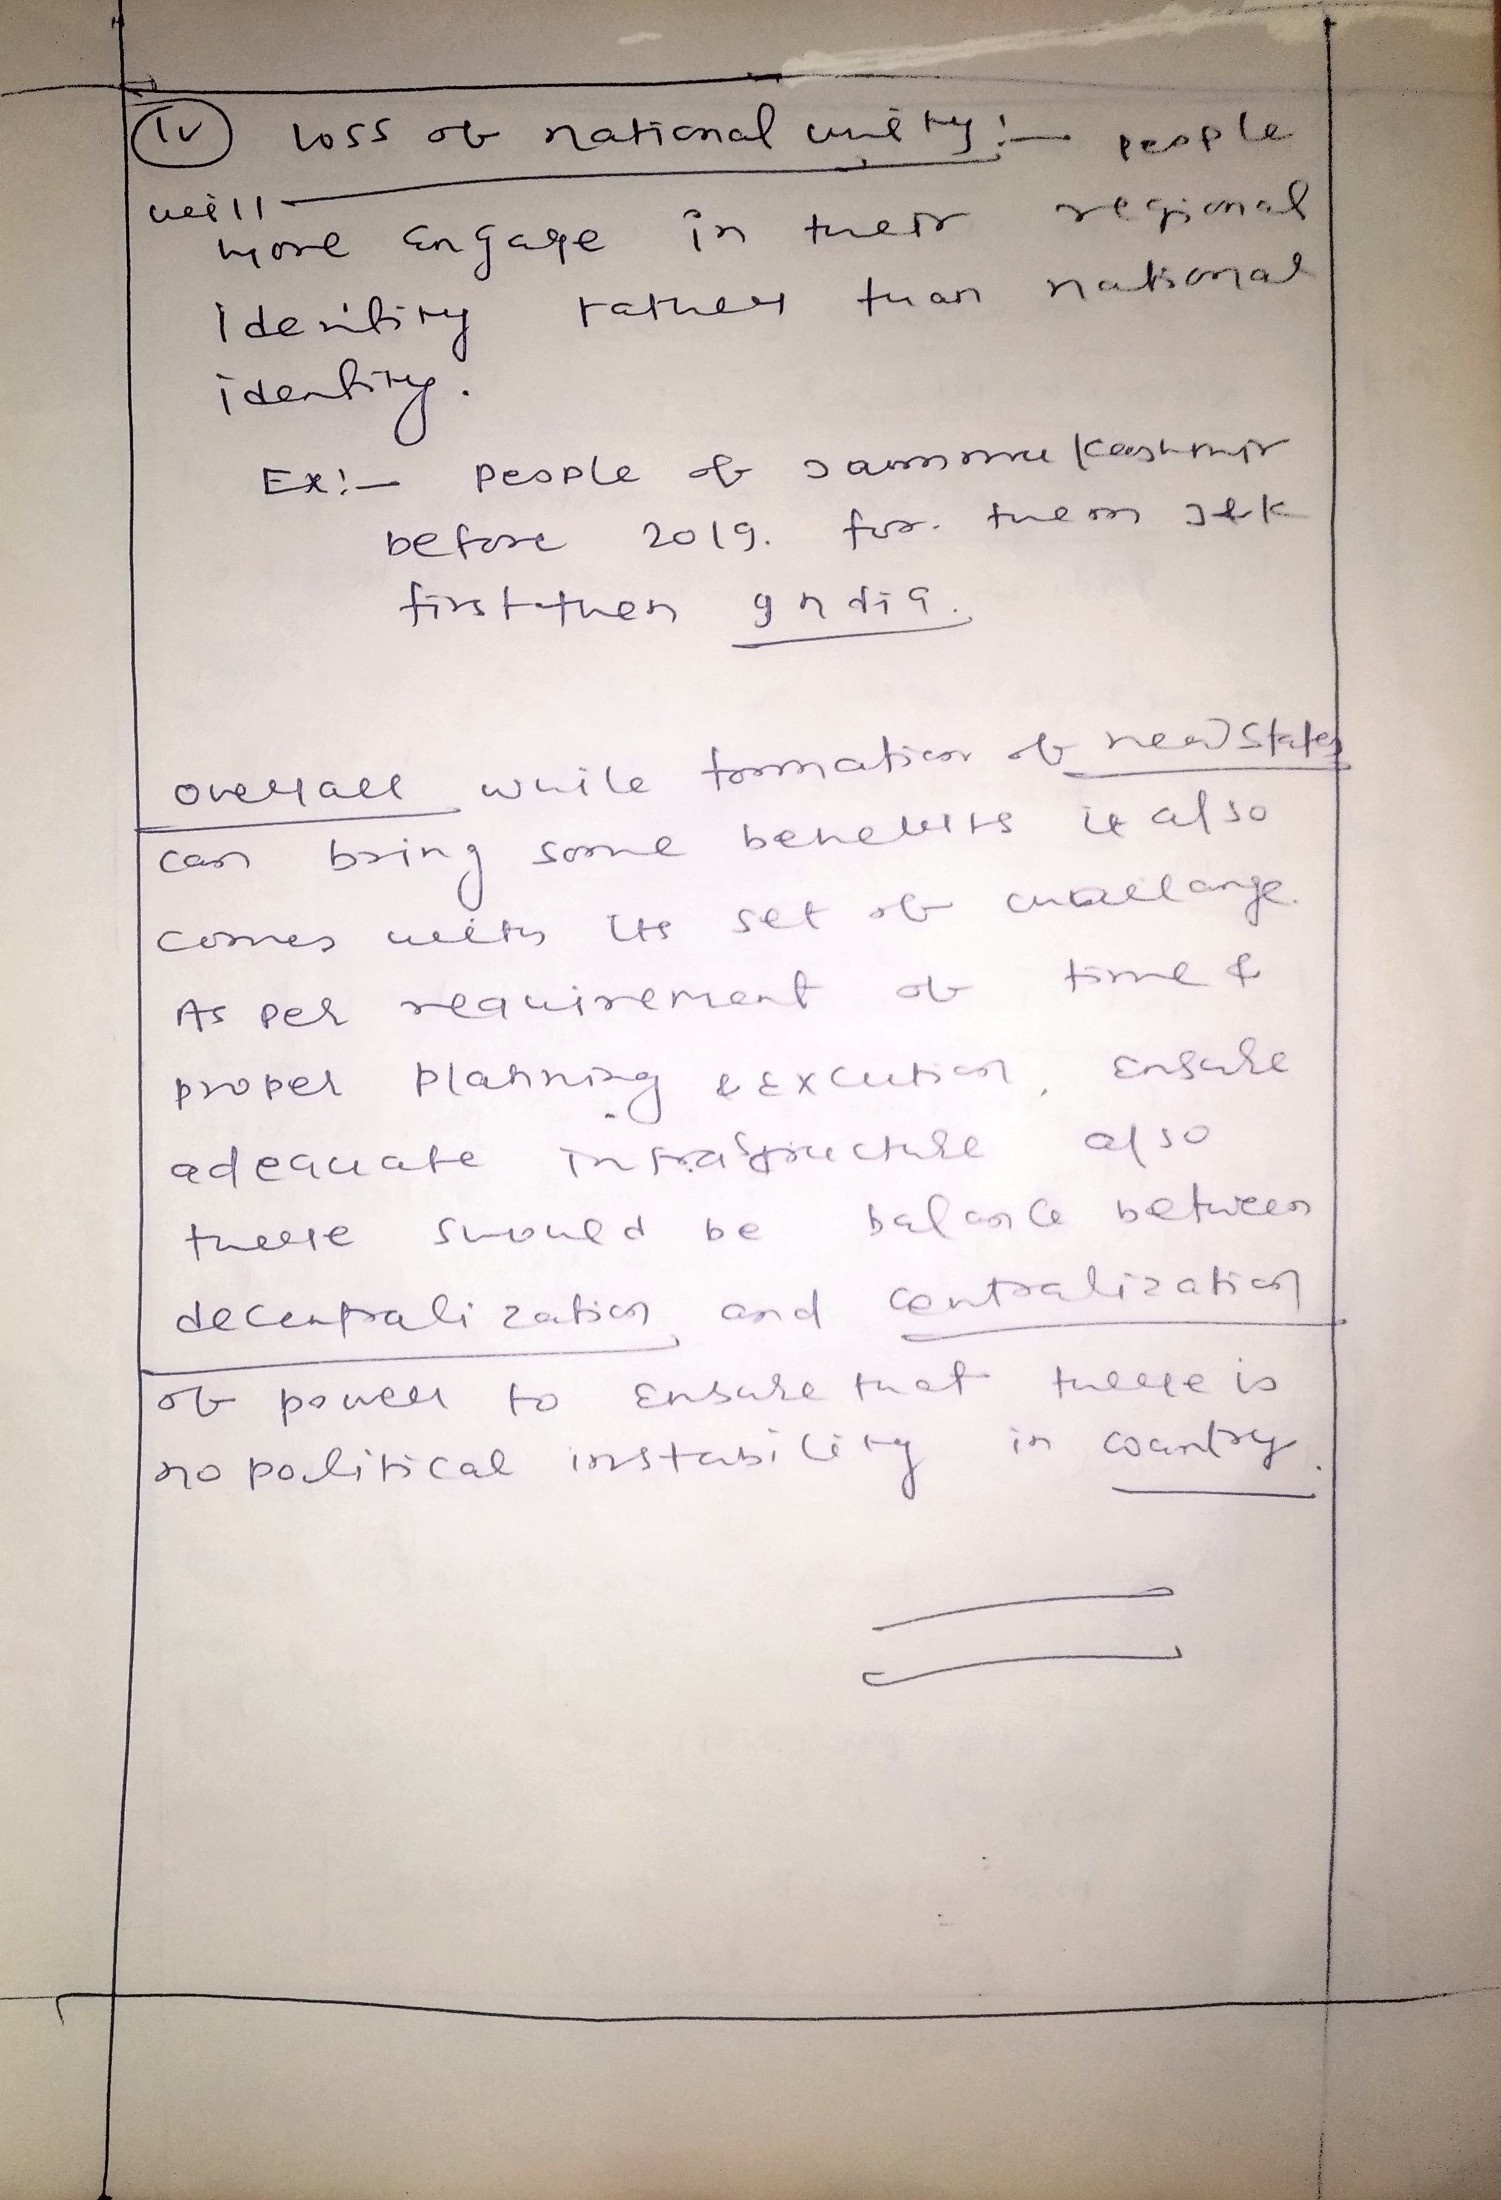 (iv) Loss of national unity :- people
will
more engage in their regional
identity rather than national
identity.
Ex:- people of Jammu Kashmir
before 2019. for them J&K
first then India.
overall while formation of new states
can bring some benefits it also
comes with its set of challange.
As per requirement of time &
proper planning & excution, ensure
adequate infrastructure also
there should be balance between
decentralization and centralization
of power to ensure that there is
no political instability in country.